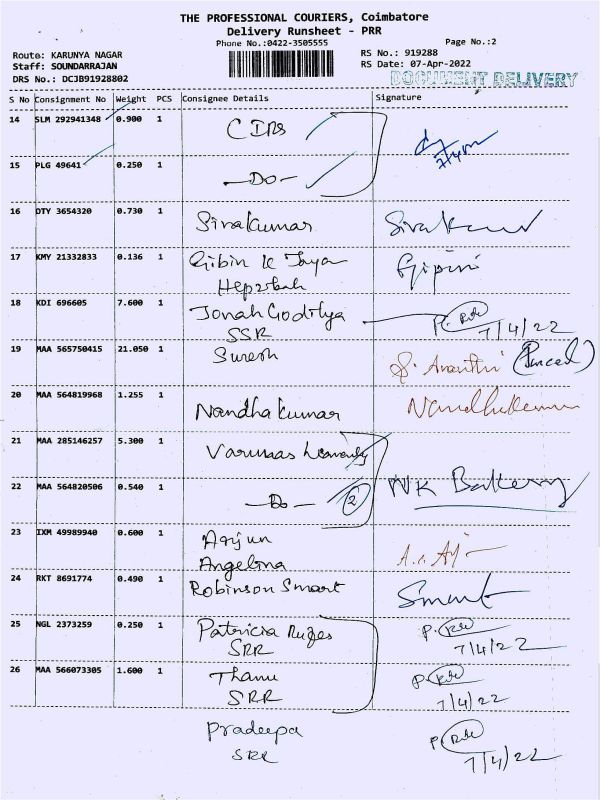 THE PROFESSIONAL COURIERS, Coimbatore
Delivery Runsheet - PRR
Phone No.:0422-3505555
Page No.:2
Route: KARUNYA NAGAR
RS No.: 919288
Staff: SOUNDARRAJAN
RS Date: 07-Apr-2022
DRS No.: DCJB91928802
DOCUMENT DELIVERY
S No Consignment No Weight PCS Consignee Details Signature
14 SLM 292941348 0.900 1
7/4/22
15 PLG 49641 0.250 1 -Do-
16 DTY 3654320 0.730 1 Sivakumar
17 KMY 21332833 0.136 1 Gibin k Jaya
Hepzibah
18 KDI 696605 7.600 1 Jonah Goditya
SSR 7/4/22
19 MAA 565750415 21.050 1 Suresh
20 MAA 564819968 1.255 1 Nandhakumar Nandhakumar
21 MAA 285146257 5.300 1
22 MAA 564820506 0.540 1 -Do- 2 NK Bakery
23 IXM 49989940 0.600 1 Arjun
Angelina
24 RKT 8691774 0.490 1 Robinson Smart Smart
25 NGL 2373259 0.250 1 Patricia
SRR 7/4/22
26 MAA 566073305 1.600 1 Thanu
SRR 7/4/22
Pradeepa
SRR 7/4/22